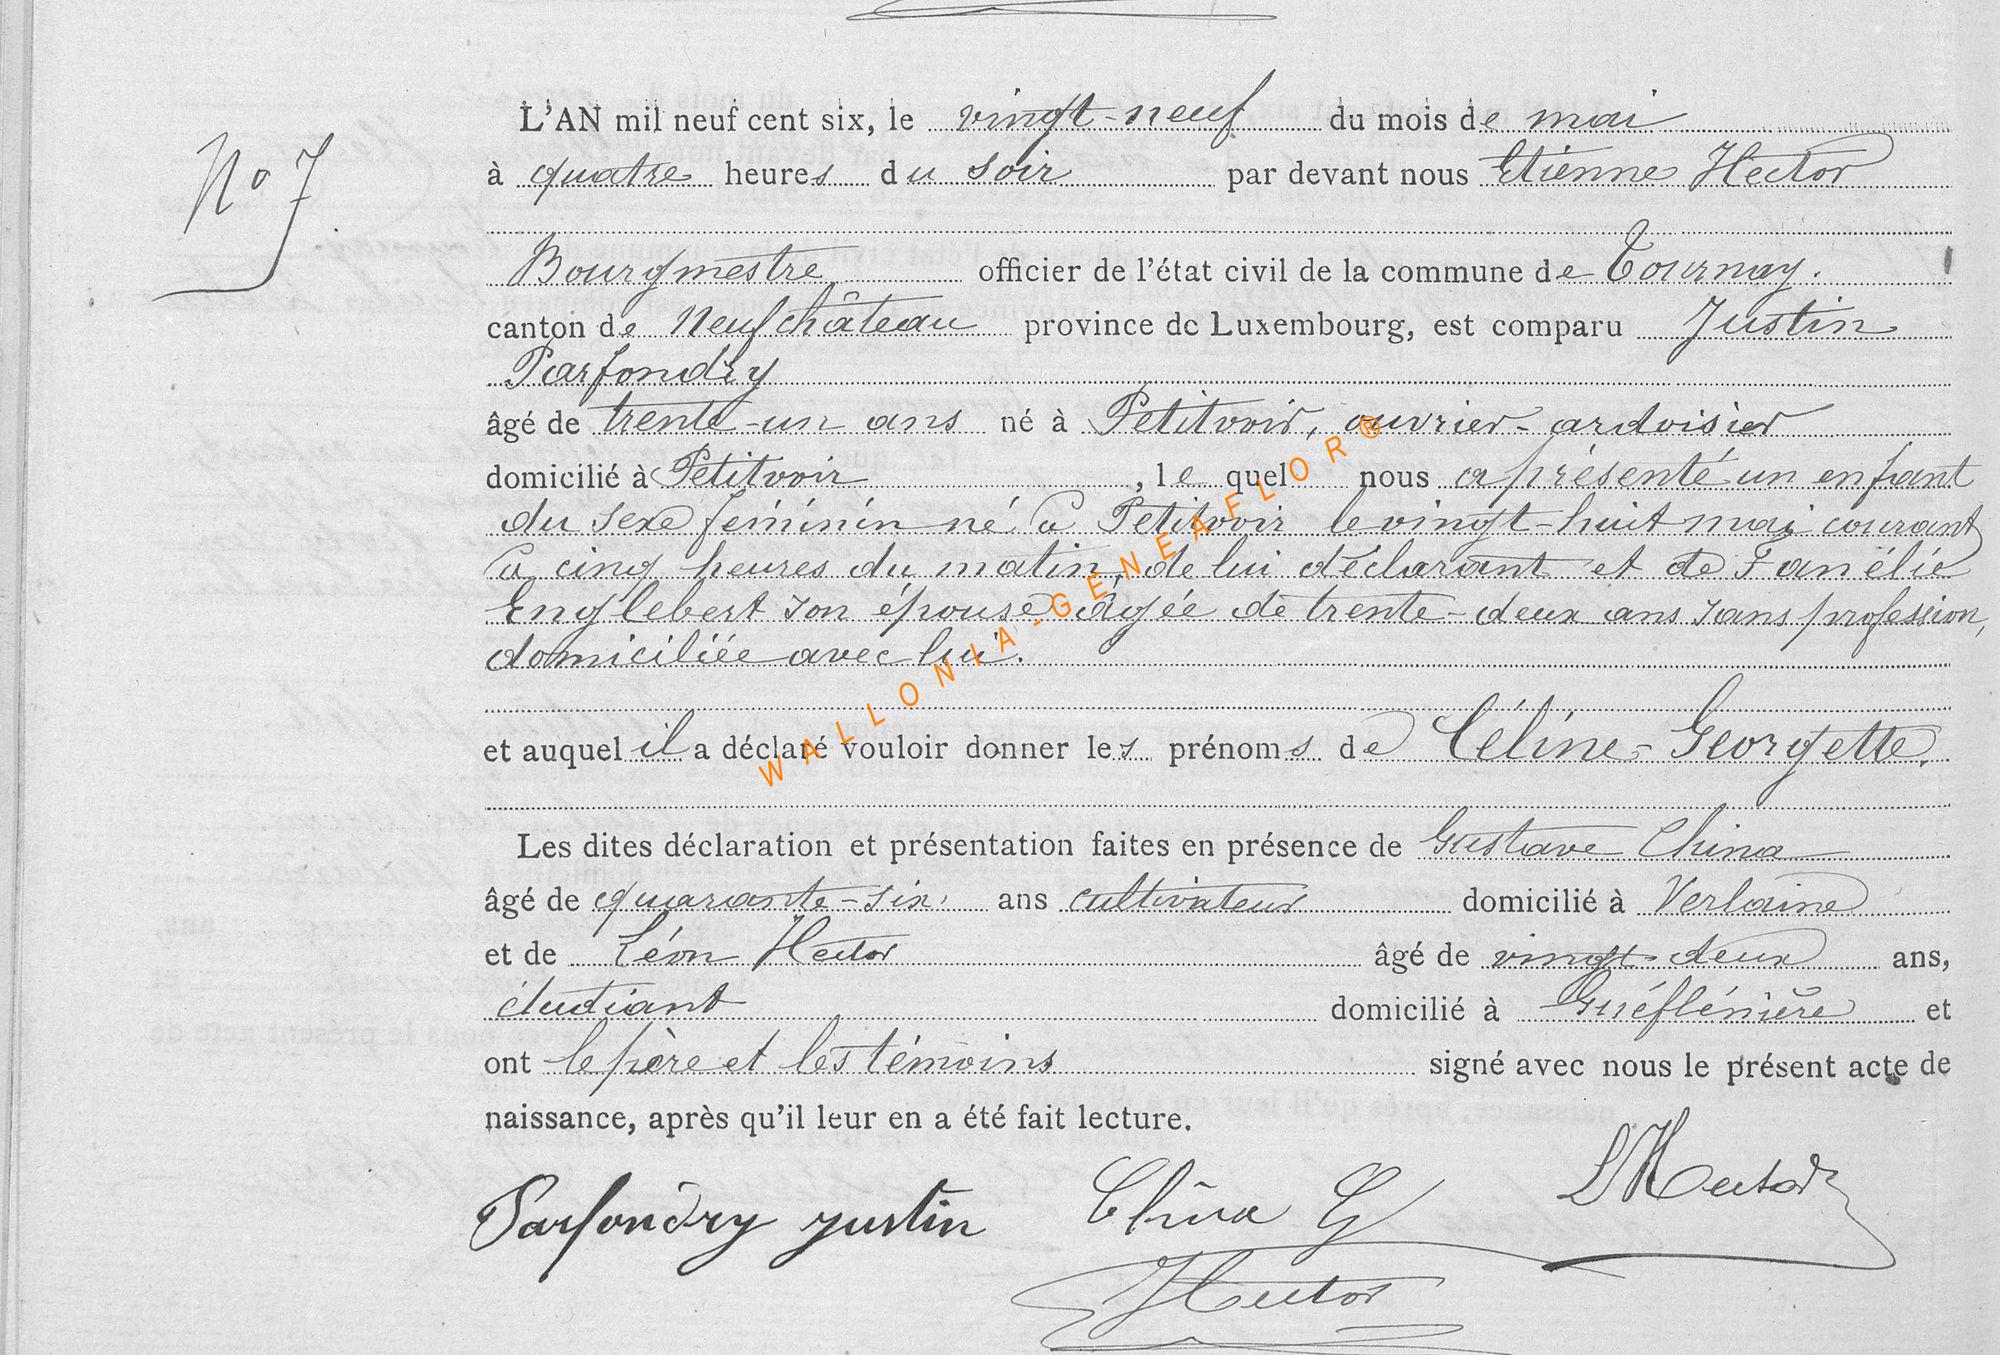 N° 7
L'AN mil neuf cent six, le vingt-neuf du mois de mai
à quatre heures du soir par devant nous Etienne Hector
Bourgmestre officier de l'état civil de la commune de Tournay.
canton de Neufchâteau province de Luxembourg, est comparu Justin
Parfondry
âgé de trente-un ans né à Petitvoir, ouvrier-ardoisier
domicilié à Petitvoir, lequel nous a présenté un enfant
du sexe féminin né à Petitvoir le vingt-huit mai courant
à cinq heures du matin, de lui déclarant et de Fanélie
Englebert son épouse âgée de trente-deux ans sans profession,
domiciliée avec lui.
et auquel il a déclaré vouloir donner les prénoms de Céline-Georgette.
Les dites déclaration et présentation faites en présence de Gustave China
âgé de quarante-six ans cultivateur domicilié à Verlaine
et de Léon Hector âgé de vingt-deux ans,
étudiant domicilié à et
ont le père et les témoins signé avec nous le présent acte de
naissance, après qu'il leur en a été fait lecture.
Parfondry justin China G L Hector
Hector
WALLONIA-GENEAFLOR®